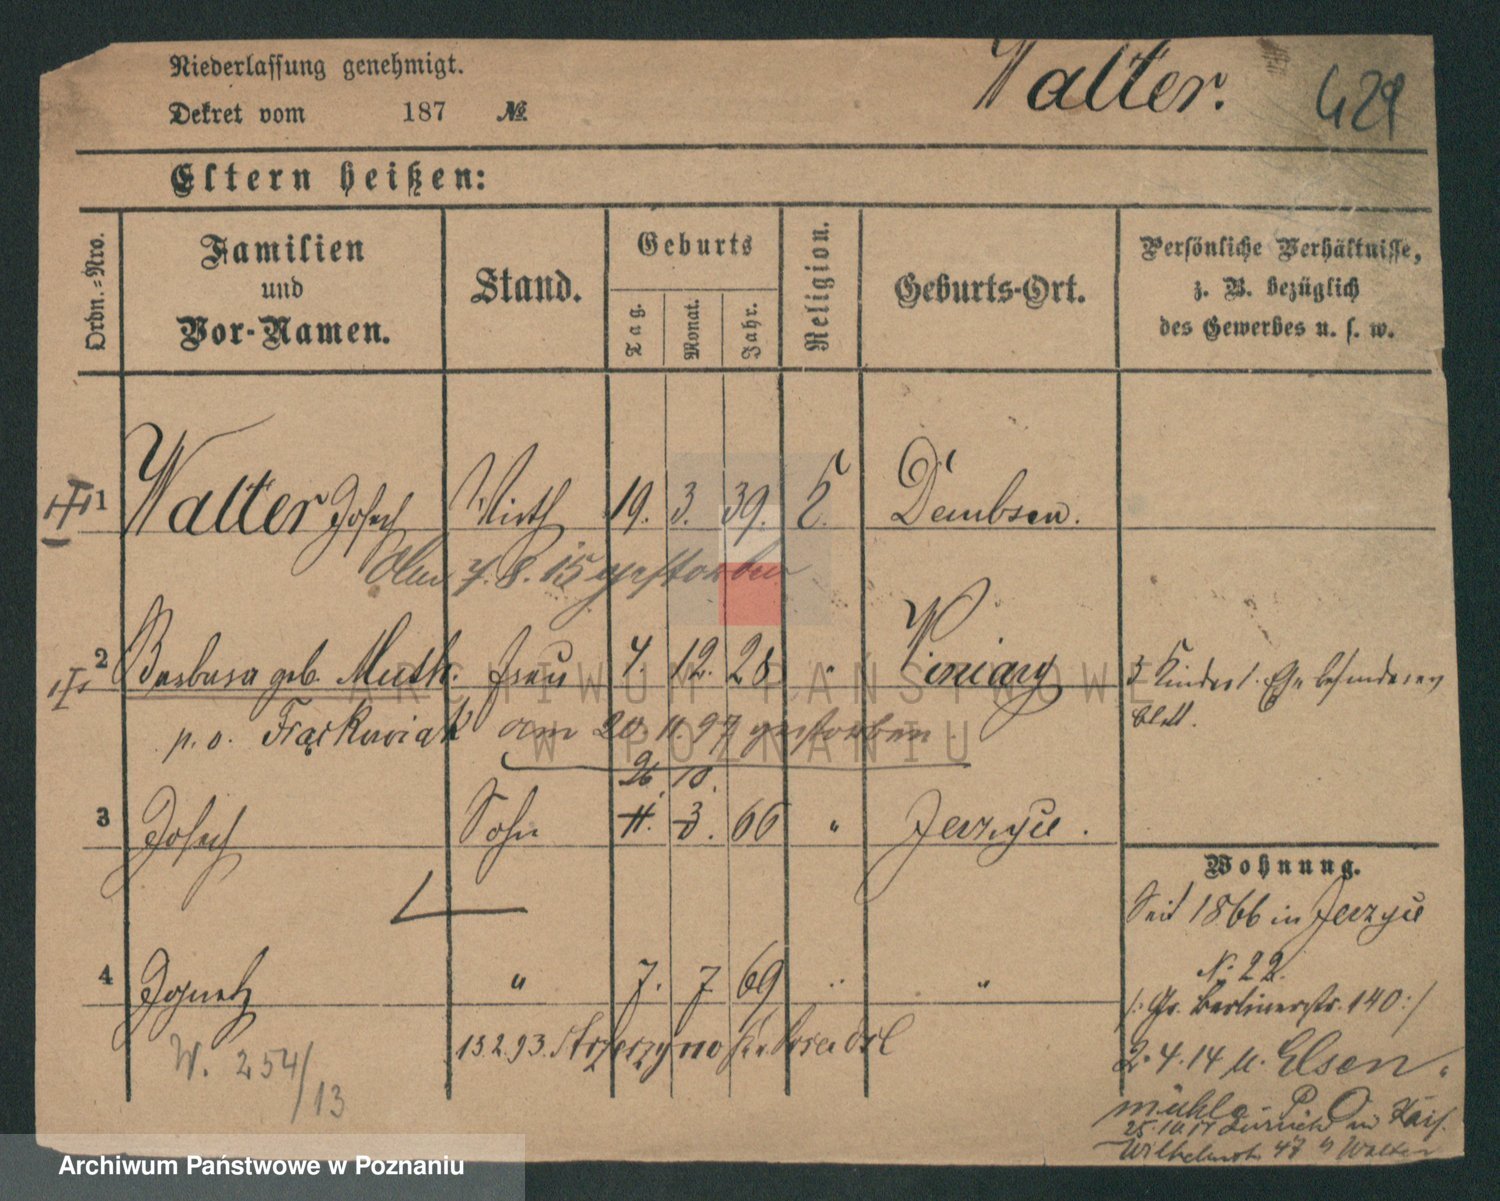 Niederlassung genehmigt.
Walter.
429
Dekret vom 187 №
Eltern heißen:
Ordn.-Nro.
Familien und Vor-Namen.
Stand.
Geburts
Tag.
Monat.
Jahr.
Religion.
Geburts-Ort.
Persönliche Verhältnisse,
z. B. bezüglich
des Gewerbes u. s. w.
1 Walter Joseph Wirth 19. 3. 39. Dembsen.
Am 7. 8. 15 gestorben
2 Barbara geb. Muth. Frau 7. 12. 28 " Winiary
3 Kinder I. Ehe besonderen
Blatt.
p. o. Frąckowiak am 20. 11. 97 gestorben
26. 10.
3 Joseph Sohn 11. 3. 66 " Jerzyce.
Wohnung.
Seit 1866 in Jerzyce
N: 22.
4 Ignatz " 7. 7 69 " "
/: Gr. Berlinerstr. 140 :/
W. 254/13
13.2.93. Strzerzyno
2.4.14 u. Elsen
mühle P. O.
25.10.17 zurück
Wilhelmstr. 47 Walter
ARCHIWUM PAŃSTWOWE
W POZNANIU
Archiwum Państwowe w Poznaniu